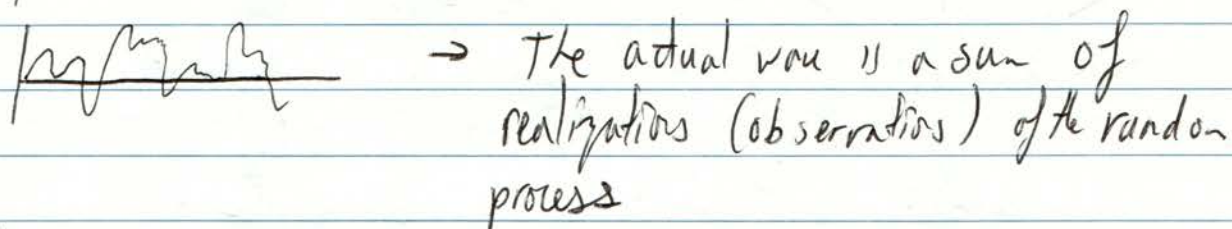 → The actual wave is a sum of
realizations (observations) of the random
process